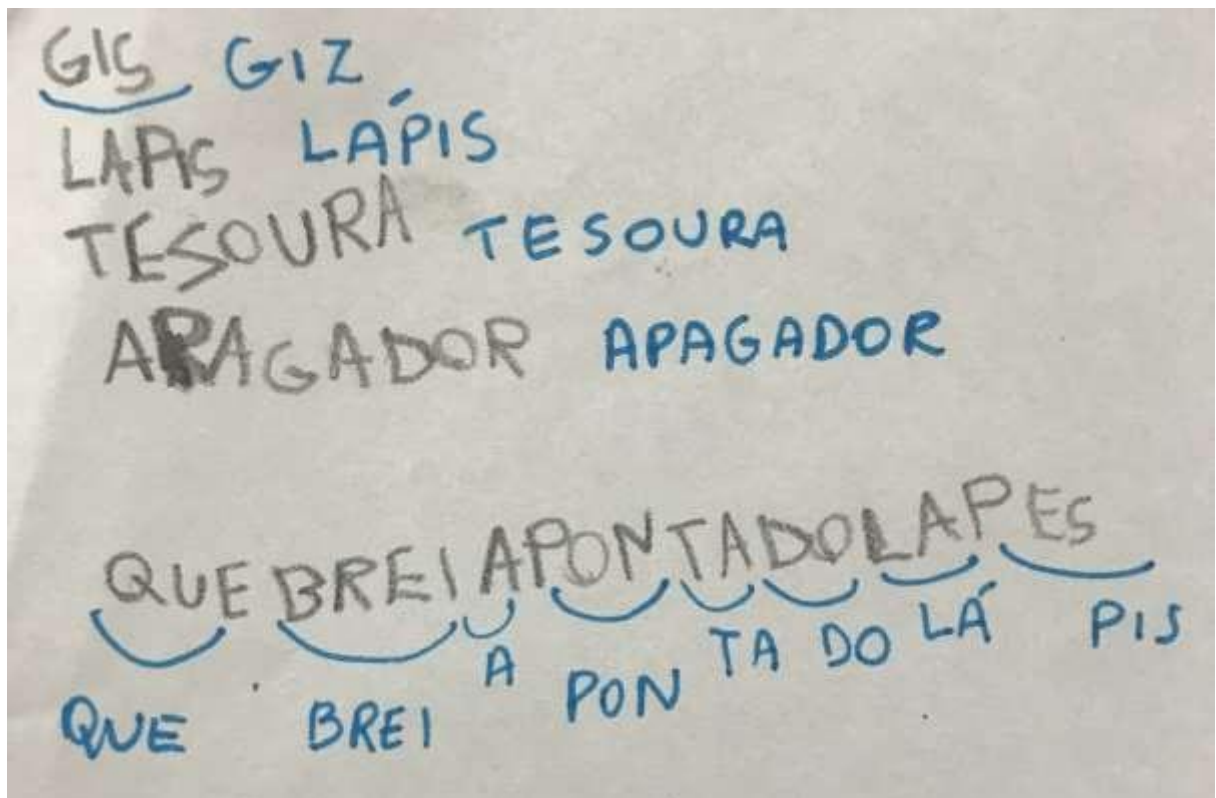 GIS GIZ
LAPIS LÁPIS
TESOURA TESOURA
APAGADOR APAGADOR
QUEBREIAPONTADOLAPES
QUE BREI A PON TA DO LÁ PIS